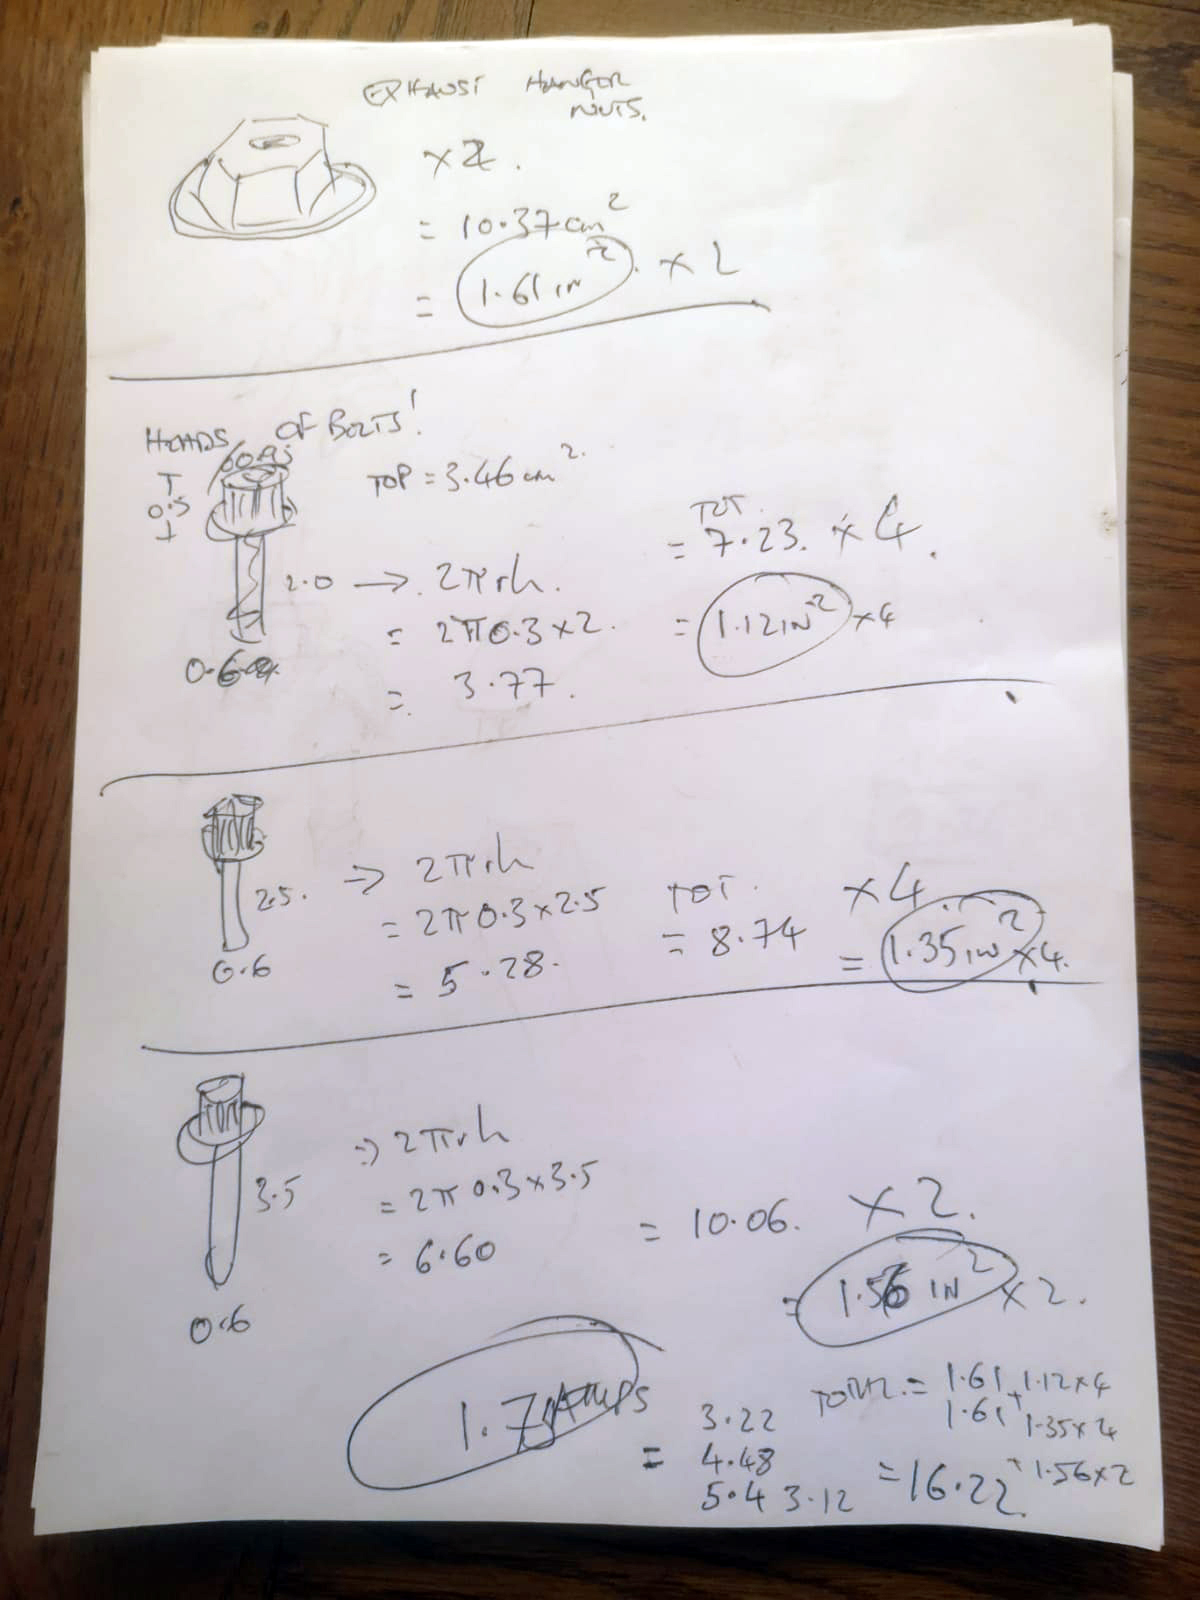 EXHAUST HANGER
NUTS.
×2.
= 10.37cm²
= 1.61 IN² × 2
HEADS OF BOLTS!
0.5
TOP = 3.46cm².
TOT.
= 7.23. × 4.
2.0 → 2πrh.
= 2π0.3×2.
= 1.12IN² ×4
0.6
= 3.77.
2.5. ⇒ 2πrh
= 2π0.3×2.5
= 5.28.
0.6
TOT.
= 8.74
×4.
= 1.35IN² ×4.
3.5 ⇒ 2πrh
= 2π0.3×3.5
= 6.60
0.6
= 10.06. ×2.
= 1.56 IN² ×2.
1.7 AMPS
TOTAL = 1.61 + 1.12×4
1.61 + 1.35×4
+ 1.56×2
= 16.22
= 3.22
4.48
5.4 3.12